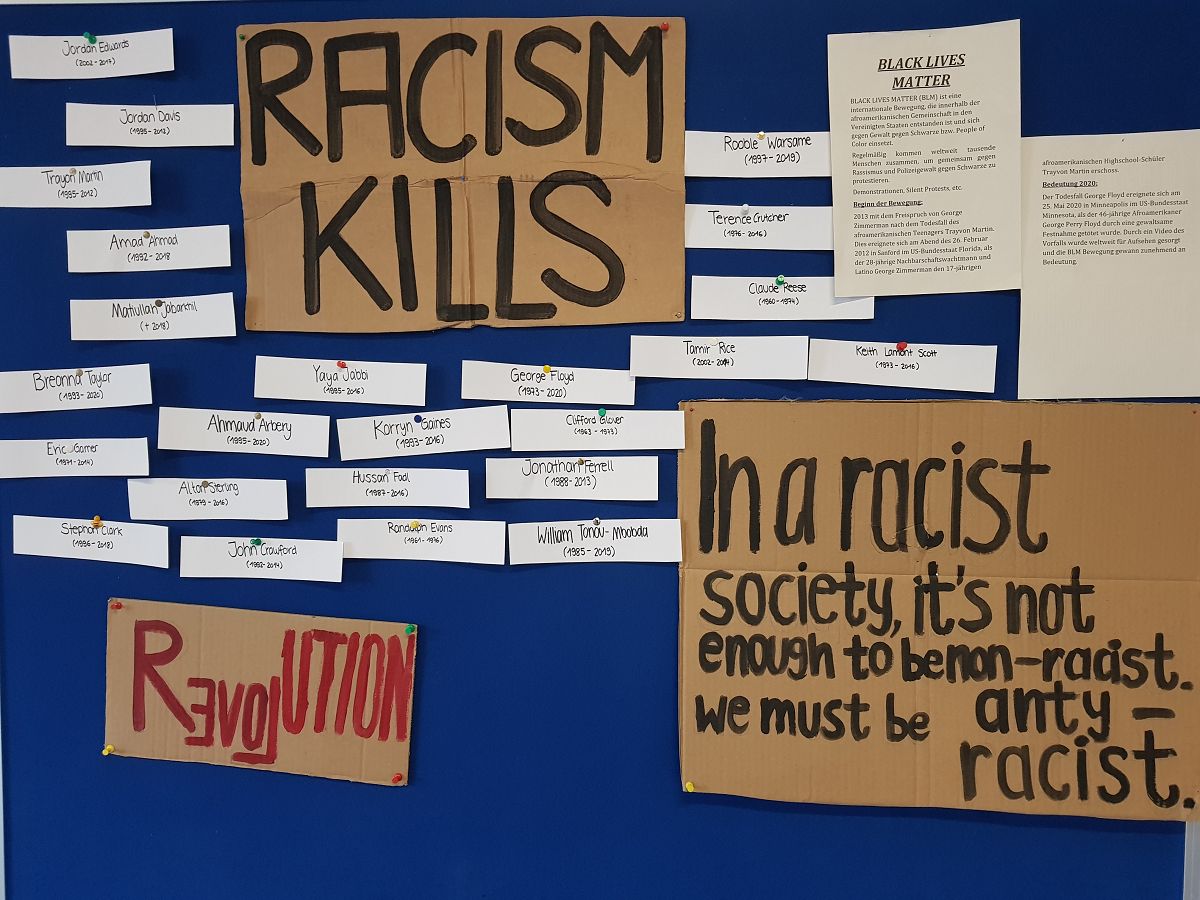 Jordan Edwards
(2002-2017)
Jordan Davis
(1995-2012)
Trayon Martin
(1995-2012)
Amad Ahmad
(1992-2018
Matiullah Jabarkhil
(† 2018)
RACISM
KILLS
Rooble Warsame
(1997-2019)
Terence Crutcher
(1976-2016)
Claude Reese
(1960-1974)
BLACK LIVES
MATTER
BLACK LIVES MATTER (BLM) ist eine
internationale Bewegung, die innerhalb der
afroamerikanischen Gemeinschaft in den
Vereinigten Staaten entstanden ist und sich
gegen Gewalt gegen Schwarze bzw. People of
Color einsetzt.
Regelmäßig kommen weltweit tausende
Menschen zusammen, um gemeinsam gegen
Rassismus und Polizeigewalt gegen Schwarze zu
protestieren.
Demonstrationen, Silent Protests, etc.
Beginn der Bewegung:
2013 mit dem Freispruch von George
Zimmerman nach dem Todesfall des
afroamerikanischen Teenagers Trayvon Martin.
Dies ereignete sich am Abend des 26. Februar
2012 in Sanford im US-Bundesstaat Florida, als
der 28-jährige Nachbarschaftswachtmann und
Latino George Zimmerman den 17-jährigen
afroamerikanischen Highschool-Schüler
Trayvon Martin erschoss.
Bedeutung 2020:
Der Todesfall George Floyd ereignete sich am
25. Mai 2020 in Minneapolis im US-Bundesstaat
Minnesota, als der 46-jährige Afroamerikaner
George Perry Floyd durch eine gewaltsame
Festnahme getötet wurde. Durch ein Video des
Vorfalls wurde weltweit für Aufsehen gesorgt
und die BLM Bewegung gewann zunehmend an
Bedeutung.
Tamir Rice
(2002-2014)
Keith Lamont Scott
(1973-2016)
Breonna Taylor
(1993-2020)
Yaya Jabbi
(1985-2016)
George Floyd
(1973-2020)
Ahmaud Arbery
(1995-2020)
Korryn Gaines
(1993-2016)
Clifford Glover
(1963-1973)
Eric Garner
(1971-2014)
Alton Sterling
(1979-2016)
Hussan Fadl
(1987-2016)
Jonathan Ferrell
(1988-2013)
Stephon Clark
(1996-2018)
John Crawford
(1992-2014)
Randolph Evans
(1961-1976)
William Tonou-Mbobda
(1985-2019)
REVOLUTION
In a racist
society, it's not
enough to be non-racist.
we must be anty-
racist.